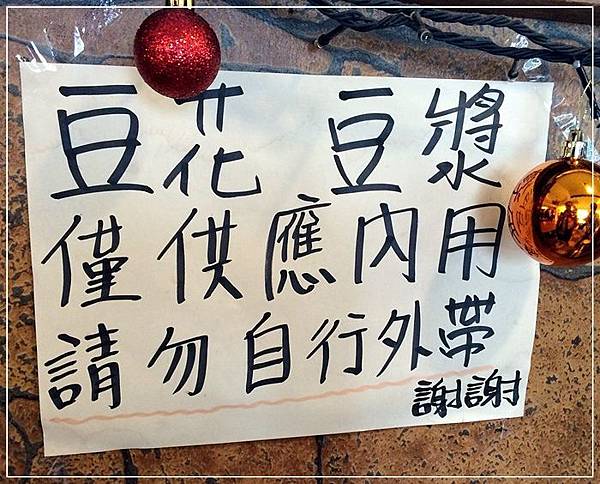 豆花 豆漿
僅供應內用
請勿自行外帶
謝謝